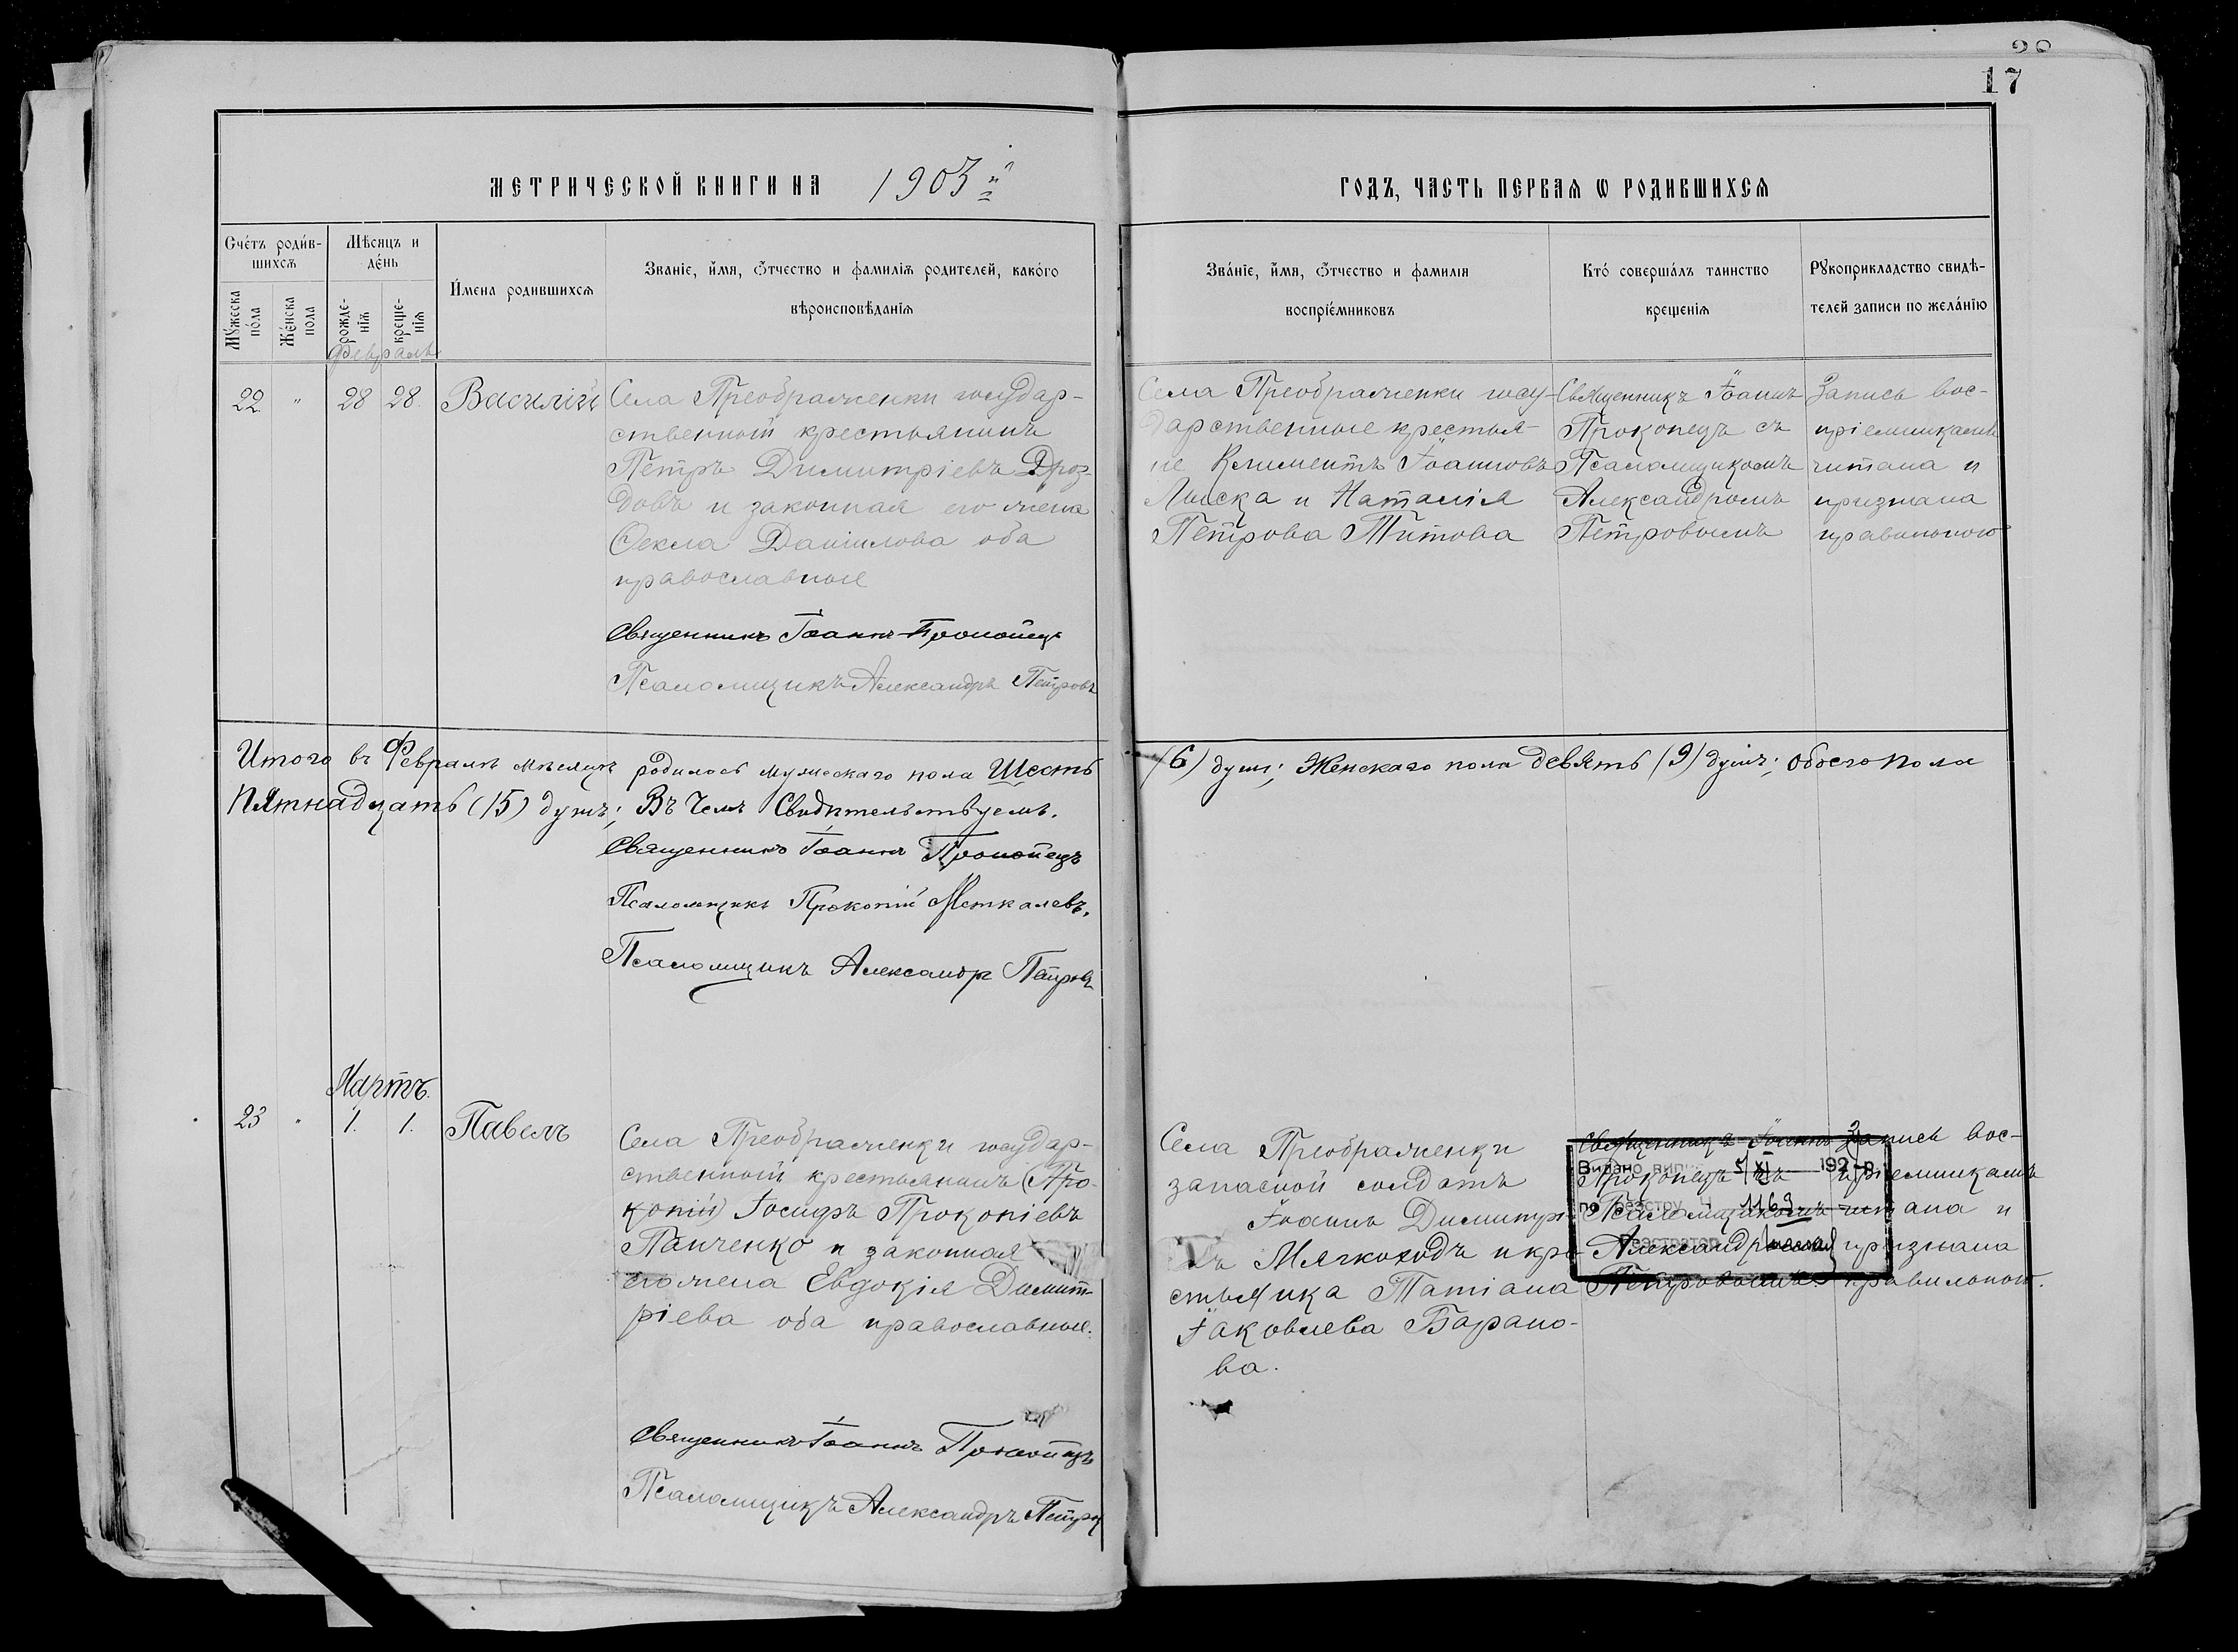 17
МЕТРИЧЕСКОЙ КНИГИ НА 1903 й
ГОДЪ, ЧАСТЬ ПЕРВАЯ Ѡ РОДИВШИХСЯ
Счéтъ роди́в-
шихсѧ
Мѣсяцъ и
дéнь
Мꙋ́жеска
пóла
Жéнска
пола
рожде-
нїѧ
креще-
нїѧ
И́мена родившихсѧ
Званїе, и́мя, ѻ́тчество и фамилїѧ родителей, какóго
вѣроисповѣданїѧ
Звáнїе, и́мя, ѻ́тчество и фамилїя
воспрїéмниковъ
Ктó совершáлъ таинство
крещенїѧ
Рꙋкоприкладство свидѣ-
телей записи по желáнїю
Февраль
22 " 28 28. Василій
Села Преображенки государ-
ственный крестьянинъ
Петръ Димитріевъ Дроз-
довъ и законная его жена
Ѳекла Даніилова оба
православные
Священникъ Іоаннъ Прокопецъ
Псаломщикъ Александръ Петровъ
Села Преображенки госу-
дарственные крестья-
не Климентъ Іоанновъ
Лыска и Наталія
Петрова Титова
Священникъ Іоаннъ
Прокопецъ съ
Псаломщикомъ
Александромъ
Петровымъ
Запись вос-
пріемникамъ
читана и
признана
правильною
Итого въ Февралѣ мѣсяцѣ родилось мужескаго пола Шесть (6) душъ; Женскаго пола девять (9) душъ; обоего пола
Пятнадцать (15) душъ; Въ чемъ Свидѣтельствуемъ.
Священникъ Іоаннъ Прокопецъ
Псаломщикъ Прокопій Меткалевъ.
Псаломщикъ Александръ Петровъ
Мартъ.
23 " 1. 1. Павелъ
Села Преображенки государ-
ственный крестьянинъ (Про-
копій) Іосифъ Прокопіевъ
Панченко и законная
его жена Евдокія Димит-
ріева оба православные.
Священникъ Іоаннъ Прокопецъ
Псаломщикъ Александръ Петровъ
Села Преображенки
запасной солдатъ
Іоаннъ Димитрі-
въ Мягкоходъ и кре-
стьянка Татіана
Іаковлева Барано-
ва.
Священникъ Іоаннъ
Прокопецъ съ
Псаломщикомъ
Александромъ
Петровымъ.
Запись вос-
пріемникамъ
читана и
признана
правильною.
Видано вип 5/XI 192 р.
по реєстру Ч. 1169
Реєстратор